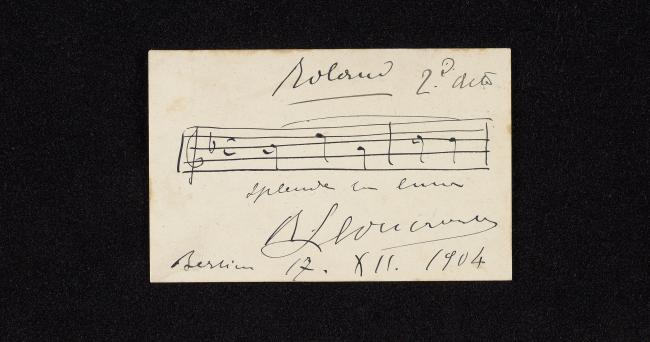 Roland 2º atto
splende la luna
R Leoncavallo
Berlin 17. XII. 1904